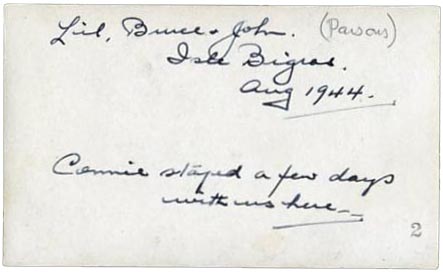 Lil, Bruce & John. (Parsons)
Isle Bigras.
Aug 1944.
Connie stayed a few days
with us here
2